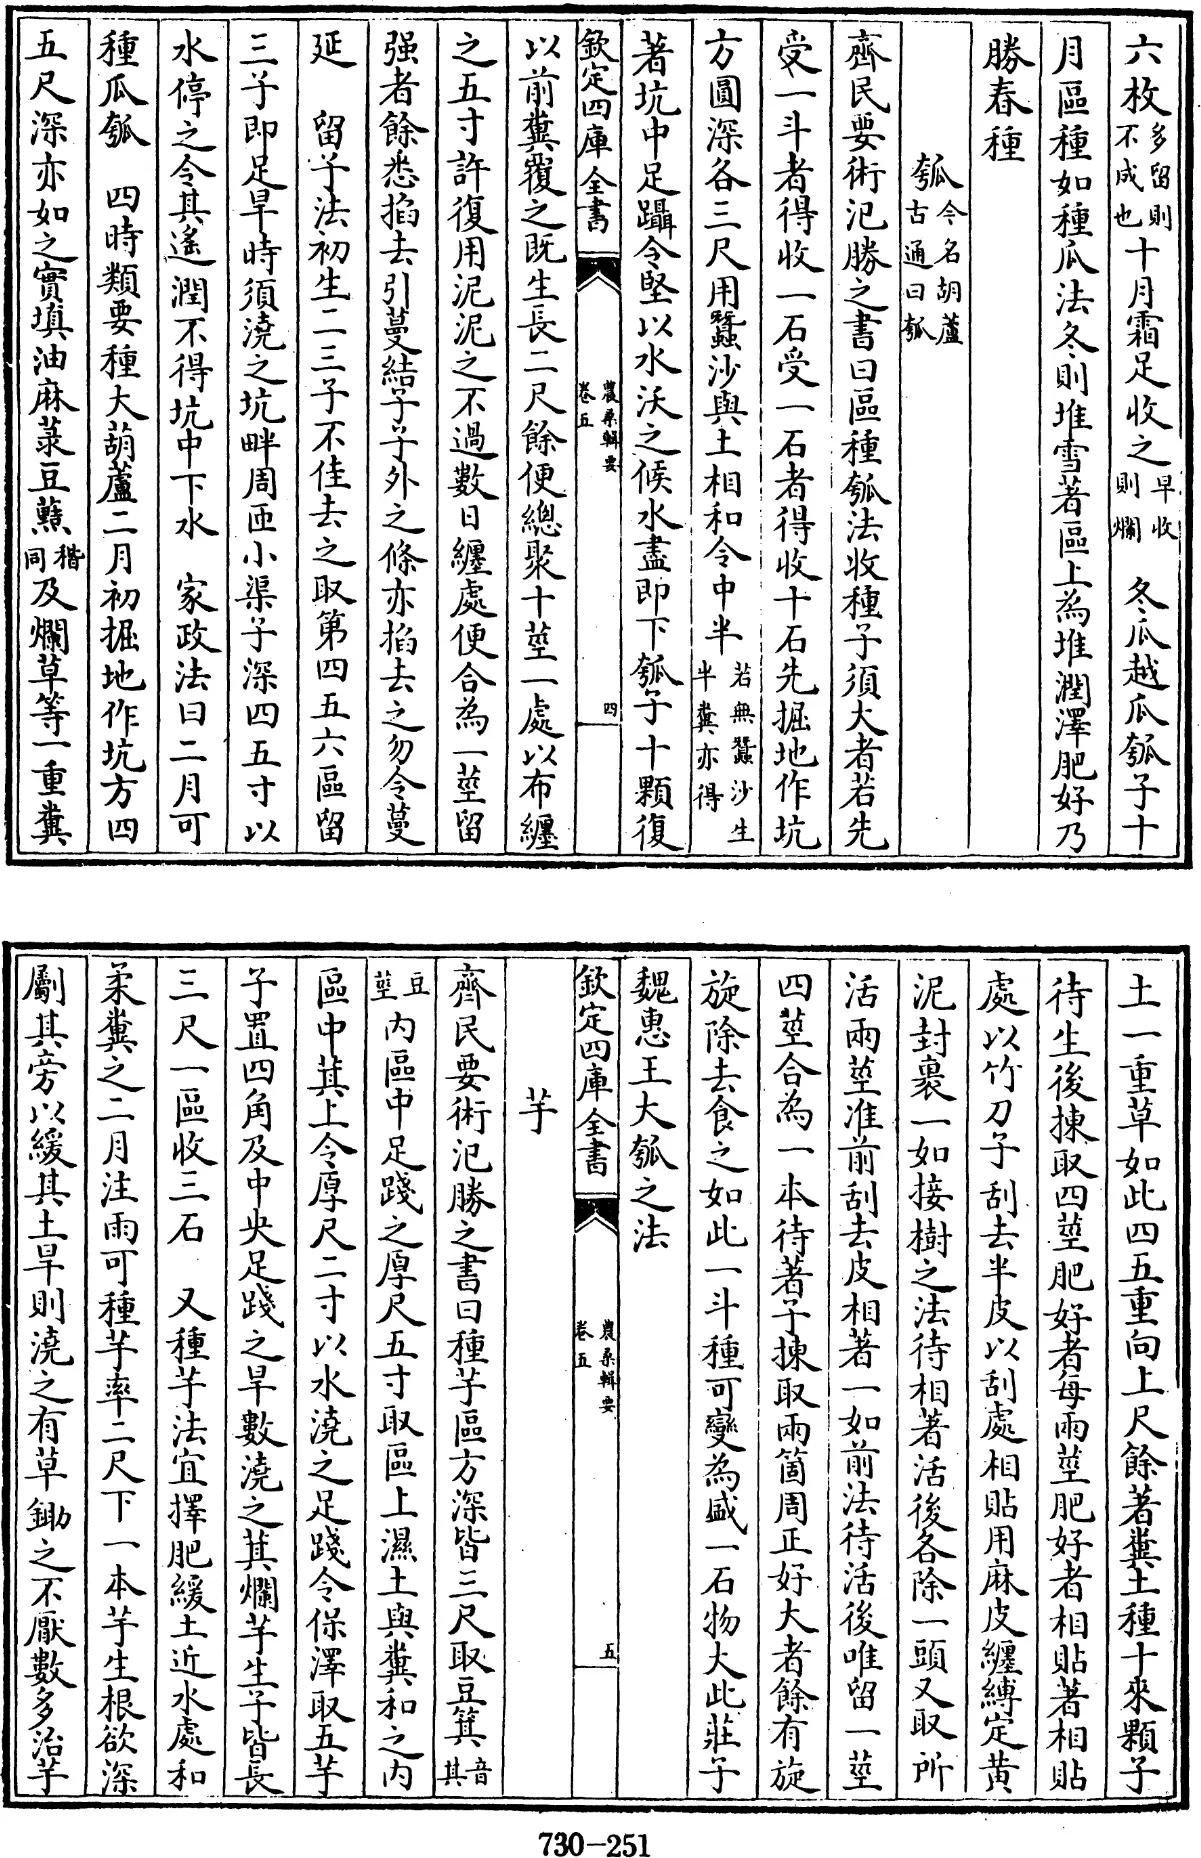 六枚多留則不成也十月霜足收之早收則爛　冬瓜越瓜瓠子十
月區種如種瓜法冬則堆雪著區上為堆潤澤肥好乃
勝春種
瓠今名胡蘆古通曰瓠
齊民要術氾勝之書曰區種瓠法收種子須大者若先
受一斗者得收一石受一石者得收十石先掘地作坑
方圓深各三尺用蠶沙與土相和令中半若無蠶沙生牛糞亦得
著坑中足躡令堅以水沃之候水盡即下瓠子十顆復
欽定四庫全書　農桑輯要卷五　四
以前糞覆之既生長二尺餘便總聚十莖一處以布纏
之五寸許復用泥泥之不過數日纏處便合為一莖留
强者餘悉掐去引蔓結子子外之條亦掐去之勿令蔓
延　留子法初生二三子不佳去之取第四五六區留
三子即足旱時須澆之坑畔周匝小渠子深四五寸以
水停之令其遙潤不得坑中下水　家政法曰二月可
種瓜瓠　四時類要種大葫蘆二月初掘地作坑方四
五尺深亦如之實填油麻菉豆䕸稭同及爛草等一重糞
土一重草如此四五重向上尺餘著糞土種十來顆子
待生後揀取四莖肥好者每兩莖肥好者相貼著相貼
處以竹刀子刮去半皮以刮處相貼用麻皮纏縛定黃
泥封裹一如接樹之法待相著活後各除一頭又取所
活兩莖准前刮去皮相著一如前法待活後唯留一莖
四莖合為一本待著子揀取兩箇周正好大者餘有旋
旋除去食之如此一斗種可變為盛一石物大此莊子
魏惠王大瓠之法
欽定四庫全書　農桑輯要卷五　五
芋
齊民要術氾勝之書曰種芋區方深皆三尺取豆箕音其
豆莖內區中足踐之厚尺五寸取區上濕土與糞和之内
區中萁上令厚尺二寸以水澆之足踐令保澤取五芋
子置四角及中央足踐之旱數澆之萁爛芋生子皆長
三尺一區收三石　又種芋法宜擇肥緩土近水處和
柔糞之二月注雨可種芋率二尺下一本芋生根欲深
劚其旁以緩其土旱則澆之有草鋤之不厭數多治芋
730-251